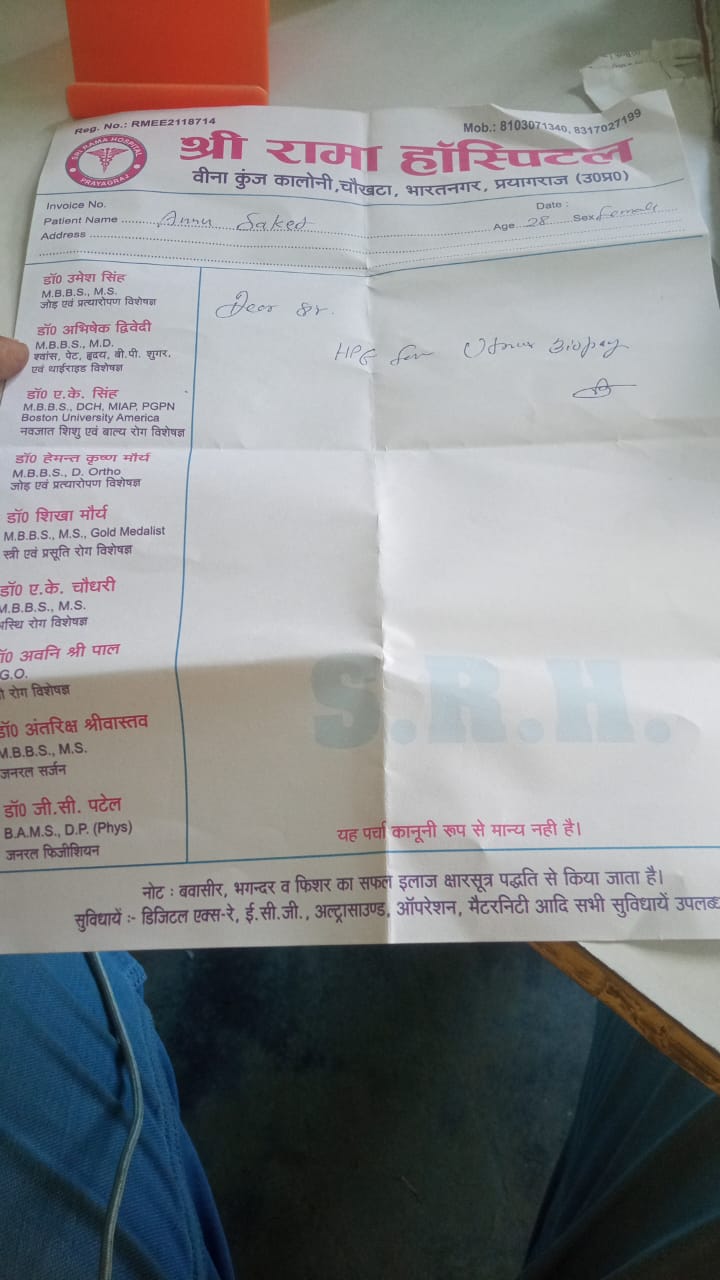 Reg. No.: RMEE2118714
Mob.: 8103071340, 8317027199
SRI RAMA HOSPITAL
PRAYAGRAJ
श्री रामा हॉस्पिटल
वीना कुंज कालोनी,चौखटा, भारतनगर, प्रयागराज (उ0प्र0)
Invoice No.
Date :
Patient Name Annu Saket
Age 28 Sex Female
Address
डॉ0 उमेश सिंह
M.B.B.S., M.S.
जोड़ एवं प्रत्यारोपण विशेषज्ञ
डॉ0 अभिषेक द्विवेदी
M.B.B.S., M.D.
श्वांस, पेट, हृदय, बी.पी. शुगर,
एवं थाईराइड विशेषज्ञ
डॉ0 ए.के. सिंह
M.B.B.S., DCH, MIAP, PGPN
Boston University America
नवजात शिशु एवं बाल्य रोग विशेषज्ञ
डॉ0 हेमन्त कृष्ण मौर्य
M.B.B.S., D. Ortho
जोड़ एवं प्रत्यारोपण विशेषज्ञ
डॉ0 शिखा मौर्य
M.B.B.S., M.S., Gold Medalist
स्त्री एवं प्रसूति रोग विशेषज्ञ
डॉ0 ए.के. चौधरी
M.B.B.S., M.S.
स्थि रोग विशेषज्ञ
डॉ0 अवनि श्री पाल
G.O.
रोग विशेषज्ञ
डॉ0 अंतरिक्ष श्रीवास्तव
M.B.B.S., M.S.
जनरल सर्जन
डॉ0 जी.सी. पटेल
B.A.M.S., D.P. (Phys)
जनरल फिजीशियन
Dear Sr.
HPE for Biopsy
S.R.H.
यह पर्चा कानूनी रूप से मान्य नही है।
नोट : बवासीर, भगन्दर व फिशर का सफल इलाज क्षारसूत्र पद्धति से किया जाता है।
सुविधायें :- डिजिटल एक्स-रे, ई.सी.जी., अल्ट्रासाउण्ड, ऑपरेशन, मैटरनिटी आदि सभी सुविधायें उपलब्ध